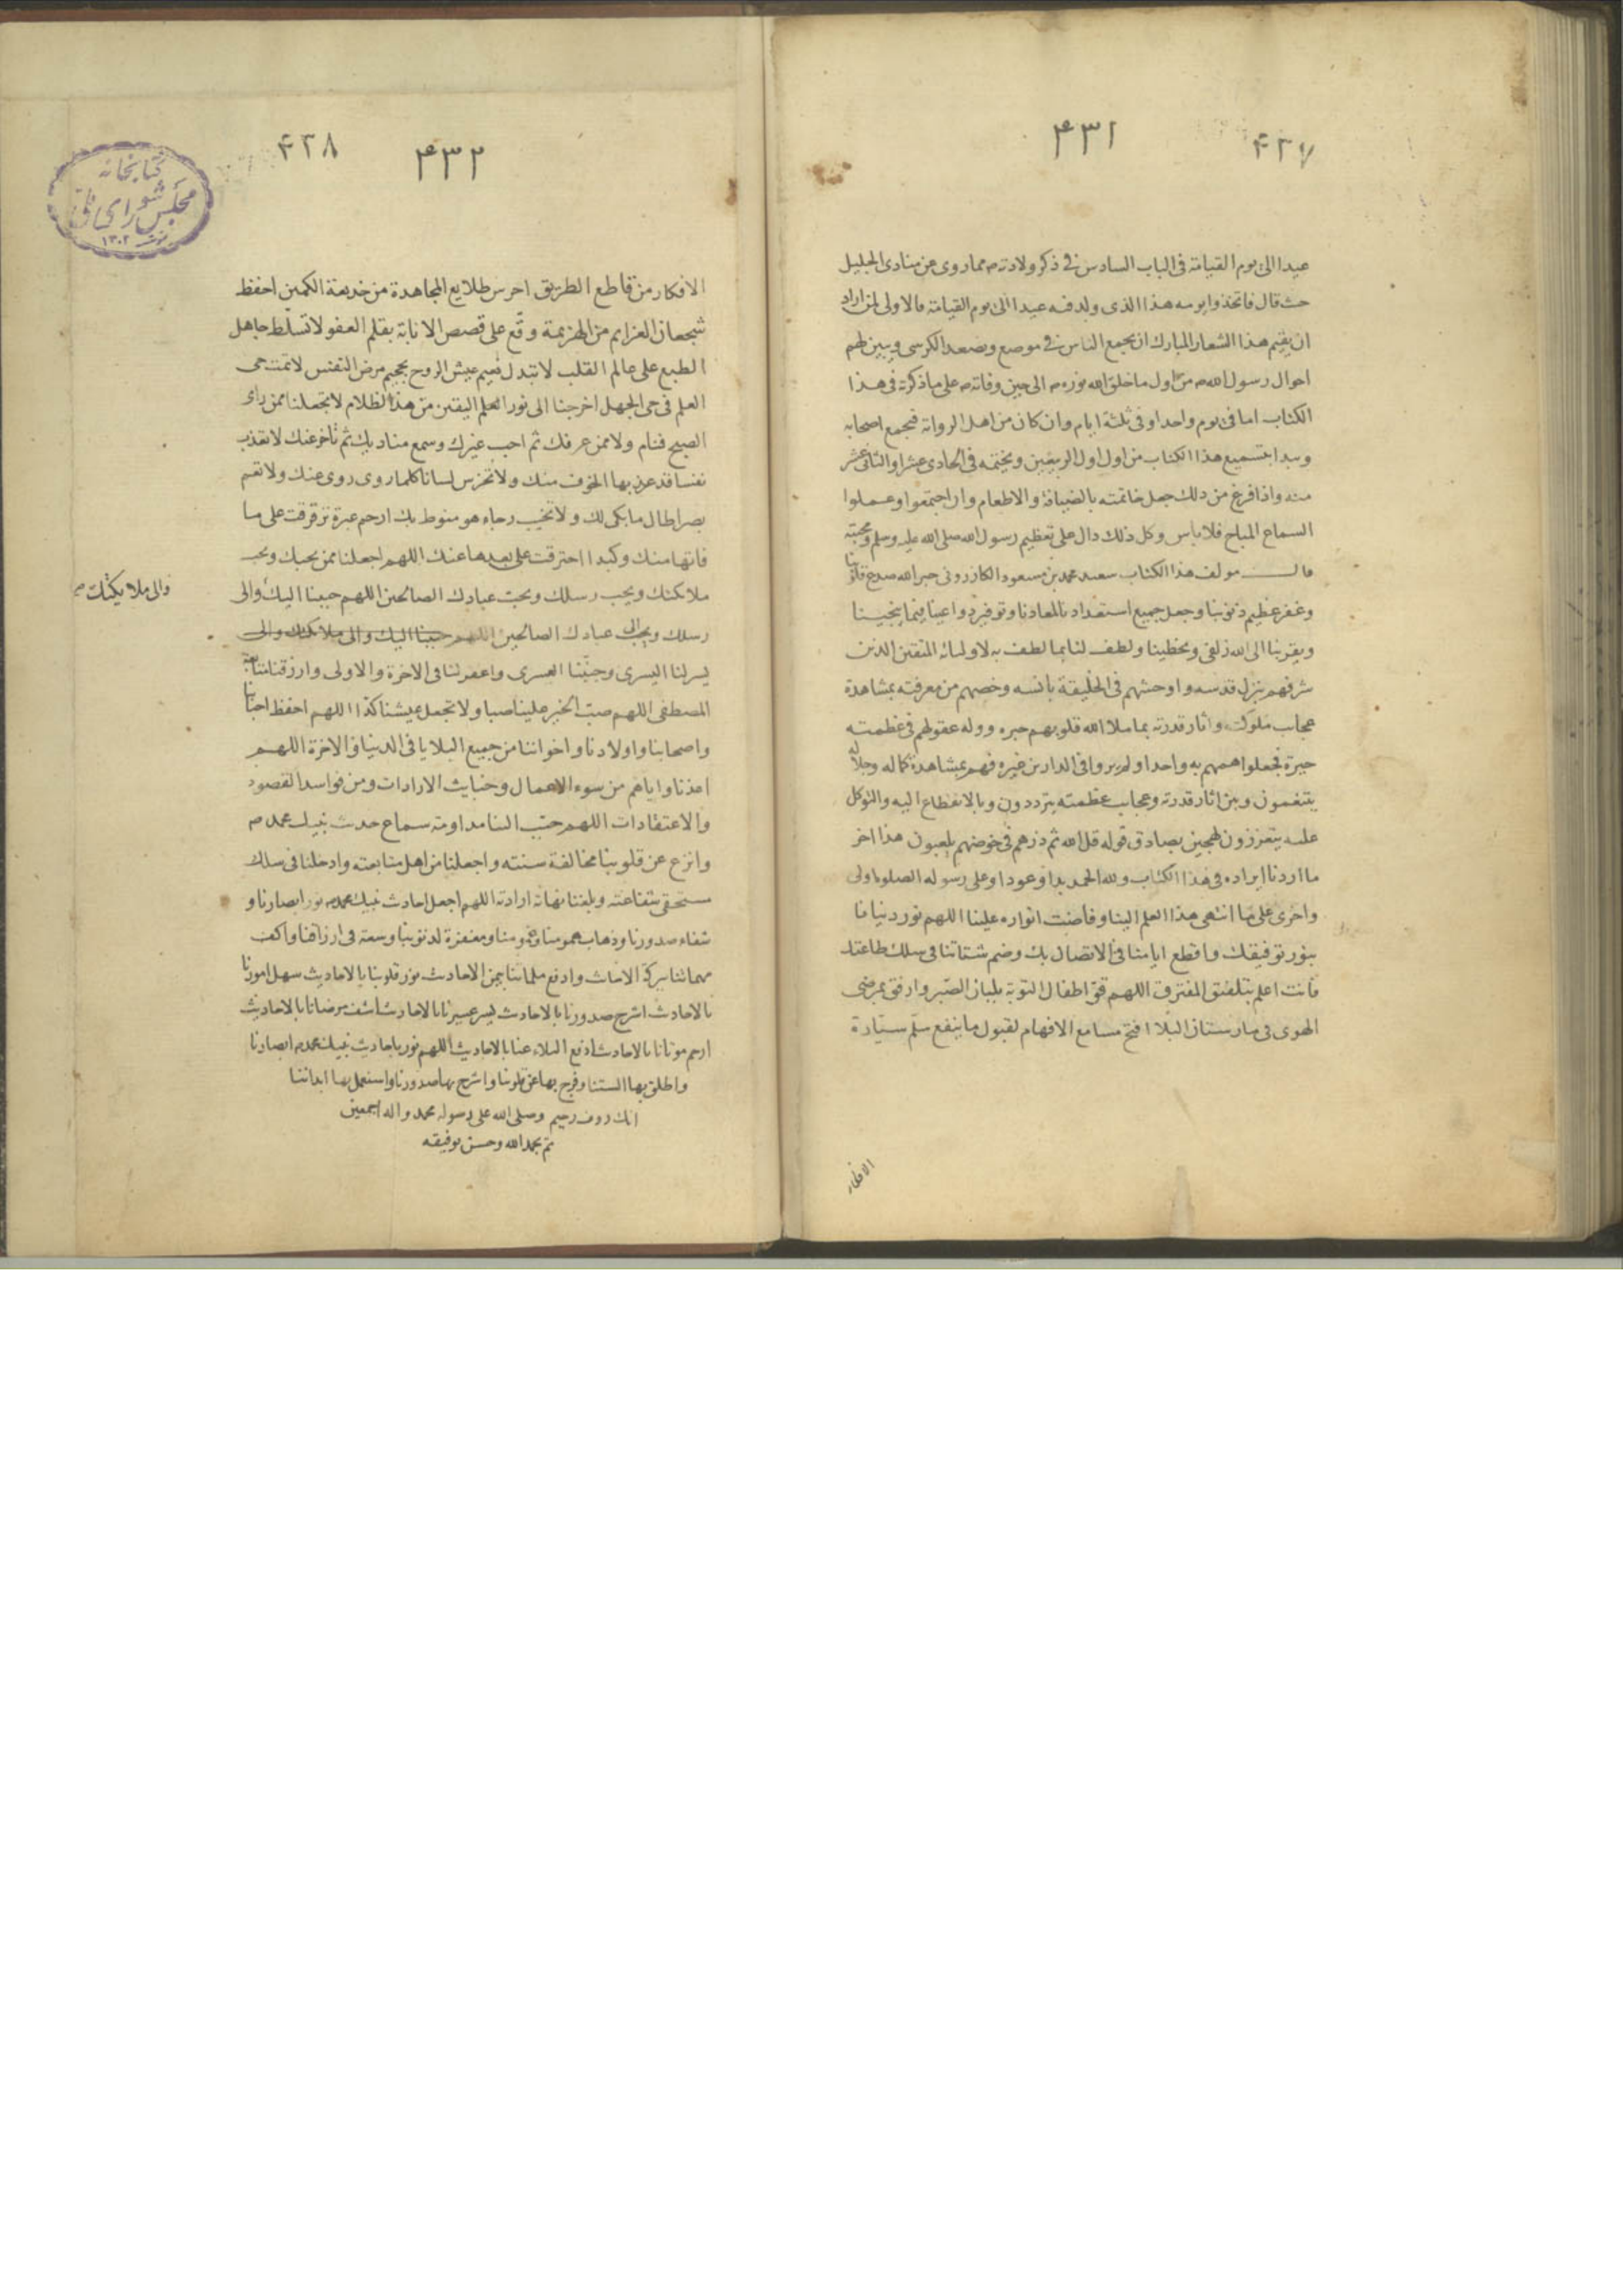 ۴۳۱
۴۲۷
عيدا الى يوم القيامة فى الباب السادس فى ذكر ولادته م مما روى عن منادى الجليل
حث قال فاتخذوا يومه هذا الذى ولد فيه عيدا الى يوم القيامة فالاولى لمن اراد
ان يقيم هذا الشعار المبارك ان يجمع الناس فى موضع ويصعد الكرسى ويبين لهم
احوال رسول الله م من اول ما خلق الله نوره م الى حين وفاته م على ما ذكرته فى هذا
الكتاب اما فى يوم واحد او فى ثلثة ايام وان كان من اهل الرواية فيجمع اصحابه
ويبدا بتسميع هذا الكتاب من اول اول الربيعين ويختمه فى الحادى عشر او الثانى عشر
منه واذا فرغ من ذلك جعل خاتمته بالضيافة والاطعام وان اجتمعوا وعملوا
السماع المباح فلا باس وكل ذلك دال على تعظيم رسول الله صلى الله عليه وسلم ومحبته
قال مولف هذا الكتاب سعيد محمد بن مسعود الكازرونى جبر الله صدع قلوبنا
وغفر عظيم ذنوبنا وجعل جميع استعدادنا لمعادنا وتوفير دواعينا فيما ينجينا
ويقربنا الى الله زلفى ويحظينا ولطف لنا بما لطف به لاوليائه المتقين الذين
شرفهم بنزل قدسه واوحشهم فى الخليقة بانسه وخصهم من معرفته بمشاهدة
عجاب ملكوته واثار قدرته بما ملا الله قلوبهم حبره ووله عقولهم فى عظمته
حيرة فجعلوا همهم به واحدا ولم يروا فى الدارين غيره فهم بمشاهدة كماله وجلاله
يتنعمون وبين اثار قدرته وعجايب عظمته يترددون وبالانقطاع اليه والتوكل
عليه يتعززون لهجين بصادق قوله قل الله ثم ذرهم فى خوضهم يلعبون هذا اخر
ما اردنا ايراده فى هذا الكتاب ولله الحمد بدا وعودا وعلى رسوله الصلوة اولى
واخرى على ما انتهى هذا العلم الينا وفاضت انواره علينا اللهم نور دنيانا
بنور توفيقك واقطع ايامنا فى الاتصال بك وضم شتاتنا فى سلك طاعتك
فانت اعلم بتلفيق المفترق اللهم قو اطفال التوبة بلبان الصبر وارفق بمرضى
الهوى فى مارستان البلا افتح مسامع الافهام لقبول ما ينفع سلم سيارة
الافكار
۴۳۲
۴۲۸
كتابخانه
مجلس شوراى ملى
۱۳۰۲
الافكار من قاطع الطريق احرس طلايع المجاهدة من خديعة الكمين احفظ
شجعان العزايم من الهزيمة وقع على قصص الانابة بقلم العفو لا تسلط جاهل
الطبع على عالم القلب لا تبدل نعيم عيش الروح بجحيم مرض النفس لا تمت حى
العلم فى حى الجهل اخرجنا الى نور العلم اليقين من هذا الظلام لا تجعلنا ممن راى
الصبح فنام ولا ممن عرفك ثم احب غيرك وسمع مناديك ثم تاخر عنك لا تعذب
نفسا قد عذبها الخوف منك ولا تخرس لسانا كلما روى روى عنك ولا تعم
بصرا طال ما بكى لك ولا تخيب رجاء هو منوط بك ارحم عبرة ترقرقت على ما
فاتها منك وكبدا احترقت على بعدها عنك اللهم اجعلنا ممن يحبك ويحب
ملائكتك ويحب رسلك ويحب عبادك الصالحين اللهم حببنا اليك والى
والى ملايكتك صح
رسلك والى عبادك الصالحين اللهم حببنا اليك والى ملائكتك والى
يسر لنا اليسرى وجنبنا العسرى واغفر لنا فى الاخرة والاولى وارزقنا متابعة
المصطفى اللهم صب الخير علينا صبا ولا تجعل عيشنا كدا اللهم احفظ احبابنا
واصحابنا واولادنا واخواننا من جميع البلايا فى الدنيا والاخرة اللهم
اعذنا واياهم من سوء الاعمال وخبايث الارادات ومن فواسد القصود
والاعتقادات اللهم حبب الينا مداومة سماع حديث نبيك محمد م
وانزع عن قلوبنا مخالفة سنته واجعلنا من اهل متابعته وادخلنا فى سلك
مستحقى شفاعته وبلغنا نهاية ارادته اللهم اجعل احاديث نبيك محمد م نور ابصارنا و
شفاء صدورنا وذهاب همومنا وغمومنا ومغفرة لذنوبنا وسعة فى ارزاقنا واكف
مهماتنا ببركة الاحاديث وادفع ملماتنا بيمن الاحاديث نور قلوبنا بالاحاديث سهل امورنا
بالاحاديث اشرح صدورنا بالاحاديث يسر عسيرنا بالاحاديث اشف مرضانا بالاحاديث
ارحم موتانا بالاحاديث ادفع البلاء عنا بالاحاديث اللهم نور باحاديث نبيك محمد م ابصارنا
واطلق بها السنتنا وفرج بها عن قلوبنا واشرح بها صدورنا واستعمل بها ابداننا
انك روف رحيم وصلى الله على رسوله محمد واله اجمعين
تم بحمد الله وحسن توفيقه